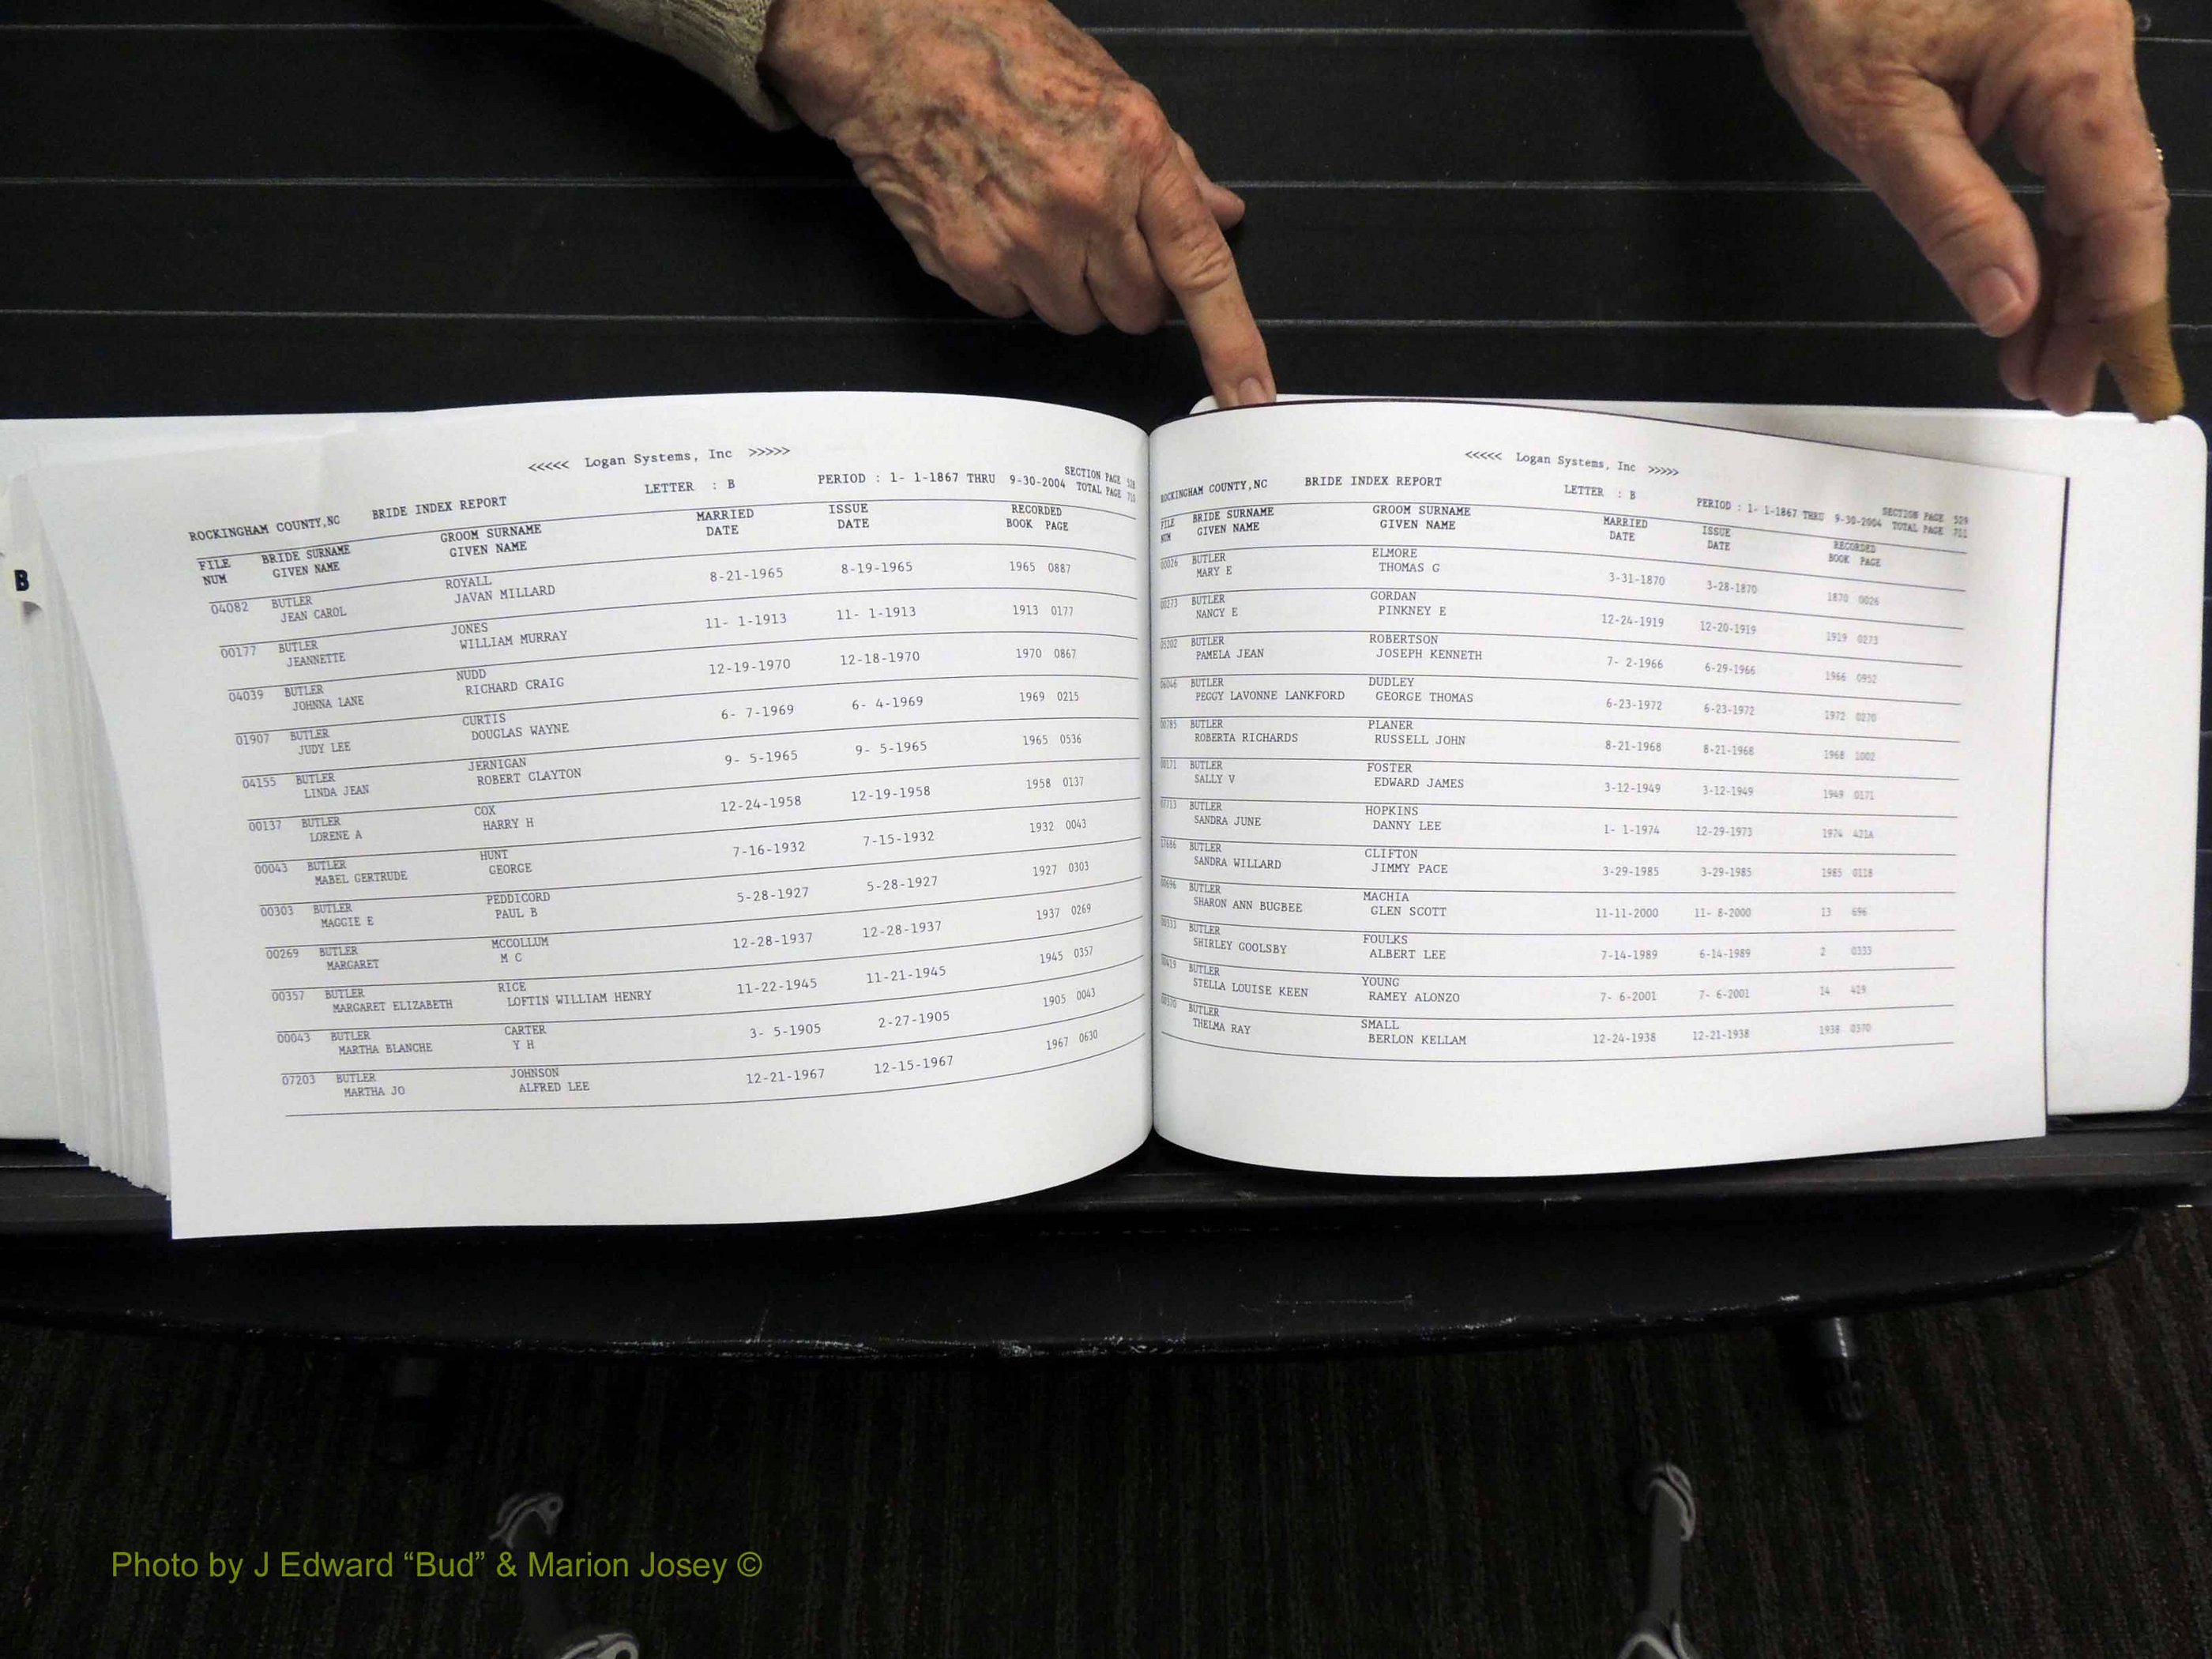 B
<<<<< Logan Systems, Inc >>>>>
ROCKINGHAM COUNTY,NC BRIDE INDEX REPORT LETTER : B PERIOD : 1- 1-1867 THRU 9-30-2004 SECTION PAGE 528
TOTAL PAGE 710
FILE BRIDE SURNAME GROOM SURNAME MARRIED ISSUE RECORDED
NUM GIVEN NAME GIVEN NAME DATE DATE BOOK PAGE
04082 BUTLER ROYALL 8-21-1965 8-19-1965 1965 0887
JEAN CAROL JAVAN MILLARD
00177 BUTLER JONES 11- 1-1913 11- 1-1913 1913 0177
JEANNETTE WILLIAM MURRAY
04039 BUTLER NUDD 12-19-1970 12-18-1970 1970 0867
JOHNNA LANE RICHARD CRAIG
01907 BUTLER CURTIS 6- 7-1969 6- 4-1969 1969 0215
JUDY LEE DOUGLAS WAYNE
04155 BUTLER JERNIGAN 9- 5-1965 9- 5-1965 1965 0536
LINDA JEAN ROBERT CLAYTON
00137 BUTLER COX 12-24-1958 12-19-1958 1958 0137
LORENE A HARRY H
00043 BUTLER HUNT 7-16-1932 7-15-1932 1932 0043
MABEL GERTRUDE GEORGE
00303 BUTLER PEDDICORD 5-28-1927 5-28-1927 1927 0303
MAGGIE E PAUL B
00269 BUTLER MCCOLLUM 12-28-1937 12-28-1937 1937 0269
MARGARET M C
00357 BUTLER RICE 11-22-1945 11-21-1945 1945 0357
MARGARET ELIZABETH LOFTIN WILLIAM HENRY
00043 BUTLER CARTER 3- 5-1905 2-27-1905 1905 0043
MARTHA BLANCHE Y H
07203 BUTLER JOHNSON 12-21-1967 12-15-1967 1967 0630
MARTHA JO ALFRED LEE
<<<<< Logan Systems, Inc >>>>>
ROCKINGHAM COUNTY,NC BRIDE INDEX REPORT LETTER : B PERIOD : 1- 1-1867 THRU 9-30-2004 SECTION PAGE 529
TOTAL PAGE 711
FILE BRIDE SURNAME GROOM SURNAME MARRIED ISSUE RECORDED
NUM GIVEN NAME GIVEN NAME DATE DATE BOOK PAGE
00026 BUTLER ELMORE 3-31-1870 3-28-1870 1870 0026
MARY E THOMAS G
00273 BUTLER GORDAN 12-24-1919 12-20-1919 1919 0273
NANCY E PINKNEY E
BUTLER ROBERTSON 7- 2-1966 6-29-1966 1966 0952
PAMELA JEAN JOSEPH KENNETH
BUTLER DUDLEY 6-23-1972 6-23-1972 1972 0270
PEGGY LAVONNE LANKFORD GEORGE THOMAS
00785 BUTLER PLANER 8-21-1968 8-21-1968 1968 1002
ROBERTA RICHARDS RUSSELL JOHN
00171 BUTLER FOSTER 3-12-1949 3-12-1949 1949 0171
SALLY V EDWARD JAMES
BUTLER HOPKINS 1- 1-1974 12-29-1973 1974 421A
SANDRA JUNE DANNY LEE
BUTLER CLIFTON 3-29-1985 3-29-1985 1985 0118
SANDRA WILLARD JIMMY PACE
00696 BUTLER MACHIA 11-11-2000 11- 8-2000 13 696
SHARON ANN BUGBEE GLEN SCOTT
00333 BUTLER FOULKS 7-14-1989 6-14-1989 2 0333
SHIRLEY GOOLSBY ALBERT LEE
00419 BUTLER YOUNG 7- 6-2001 7- 6-2001 14 419
STELLA LOUISE KEEN RAMEY ALONZO
00370 BUTLER SMALL 12-24-1938 12-21-1938 1938 0370
THELMA RAY BERLON KELLAM
Photo by J Edward “Bud” & Marion Josey ©